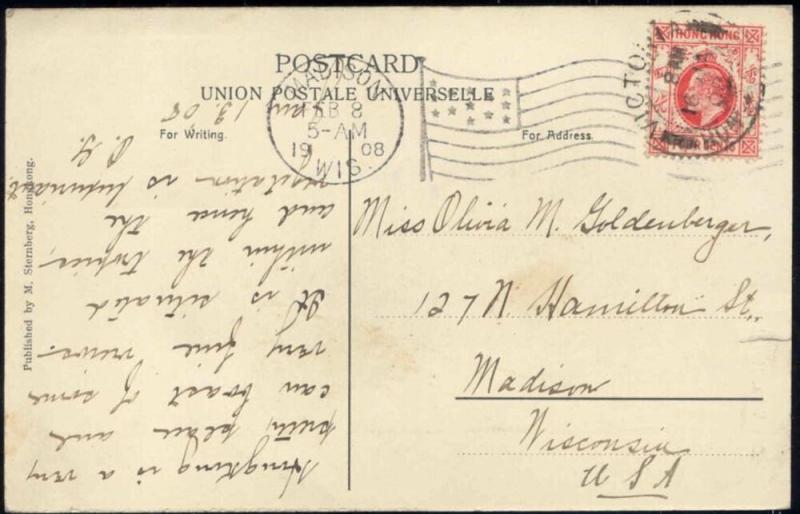 POSTCARD
UNION POSTALE UNIVERSELLE
For Writing.
For Address.
MADISON
FEB 8
5-AM
19 08
WIS.
HONGKONG
VICTORIA
FOUR CENTS
Published by M. Sternberg, Hongkong.
Hongkong is a very
pretty place and
can boast of some
very fine views.
It is situated
within the tropics
and hence the
vegetation is luxuriant.
Jan 13. 08
Miss Olivia M. Goldenberger,
127 N. Hamilton St.,
Madison
Wisconsin
USA